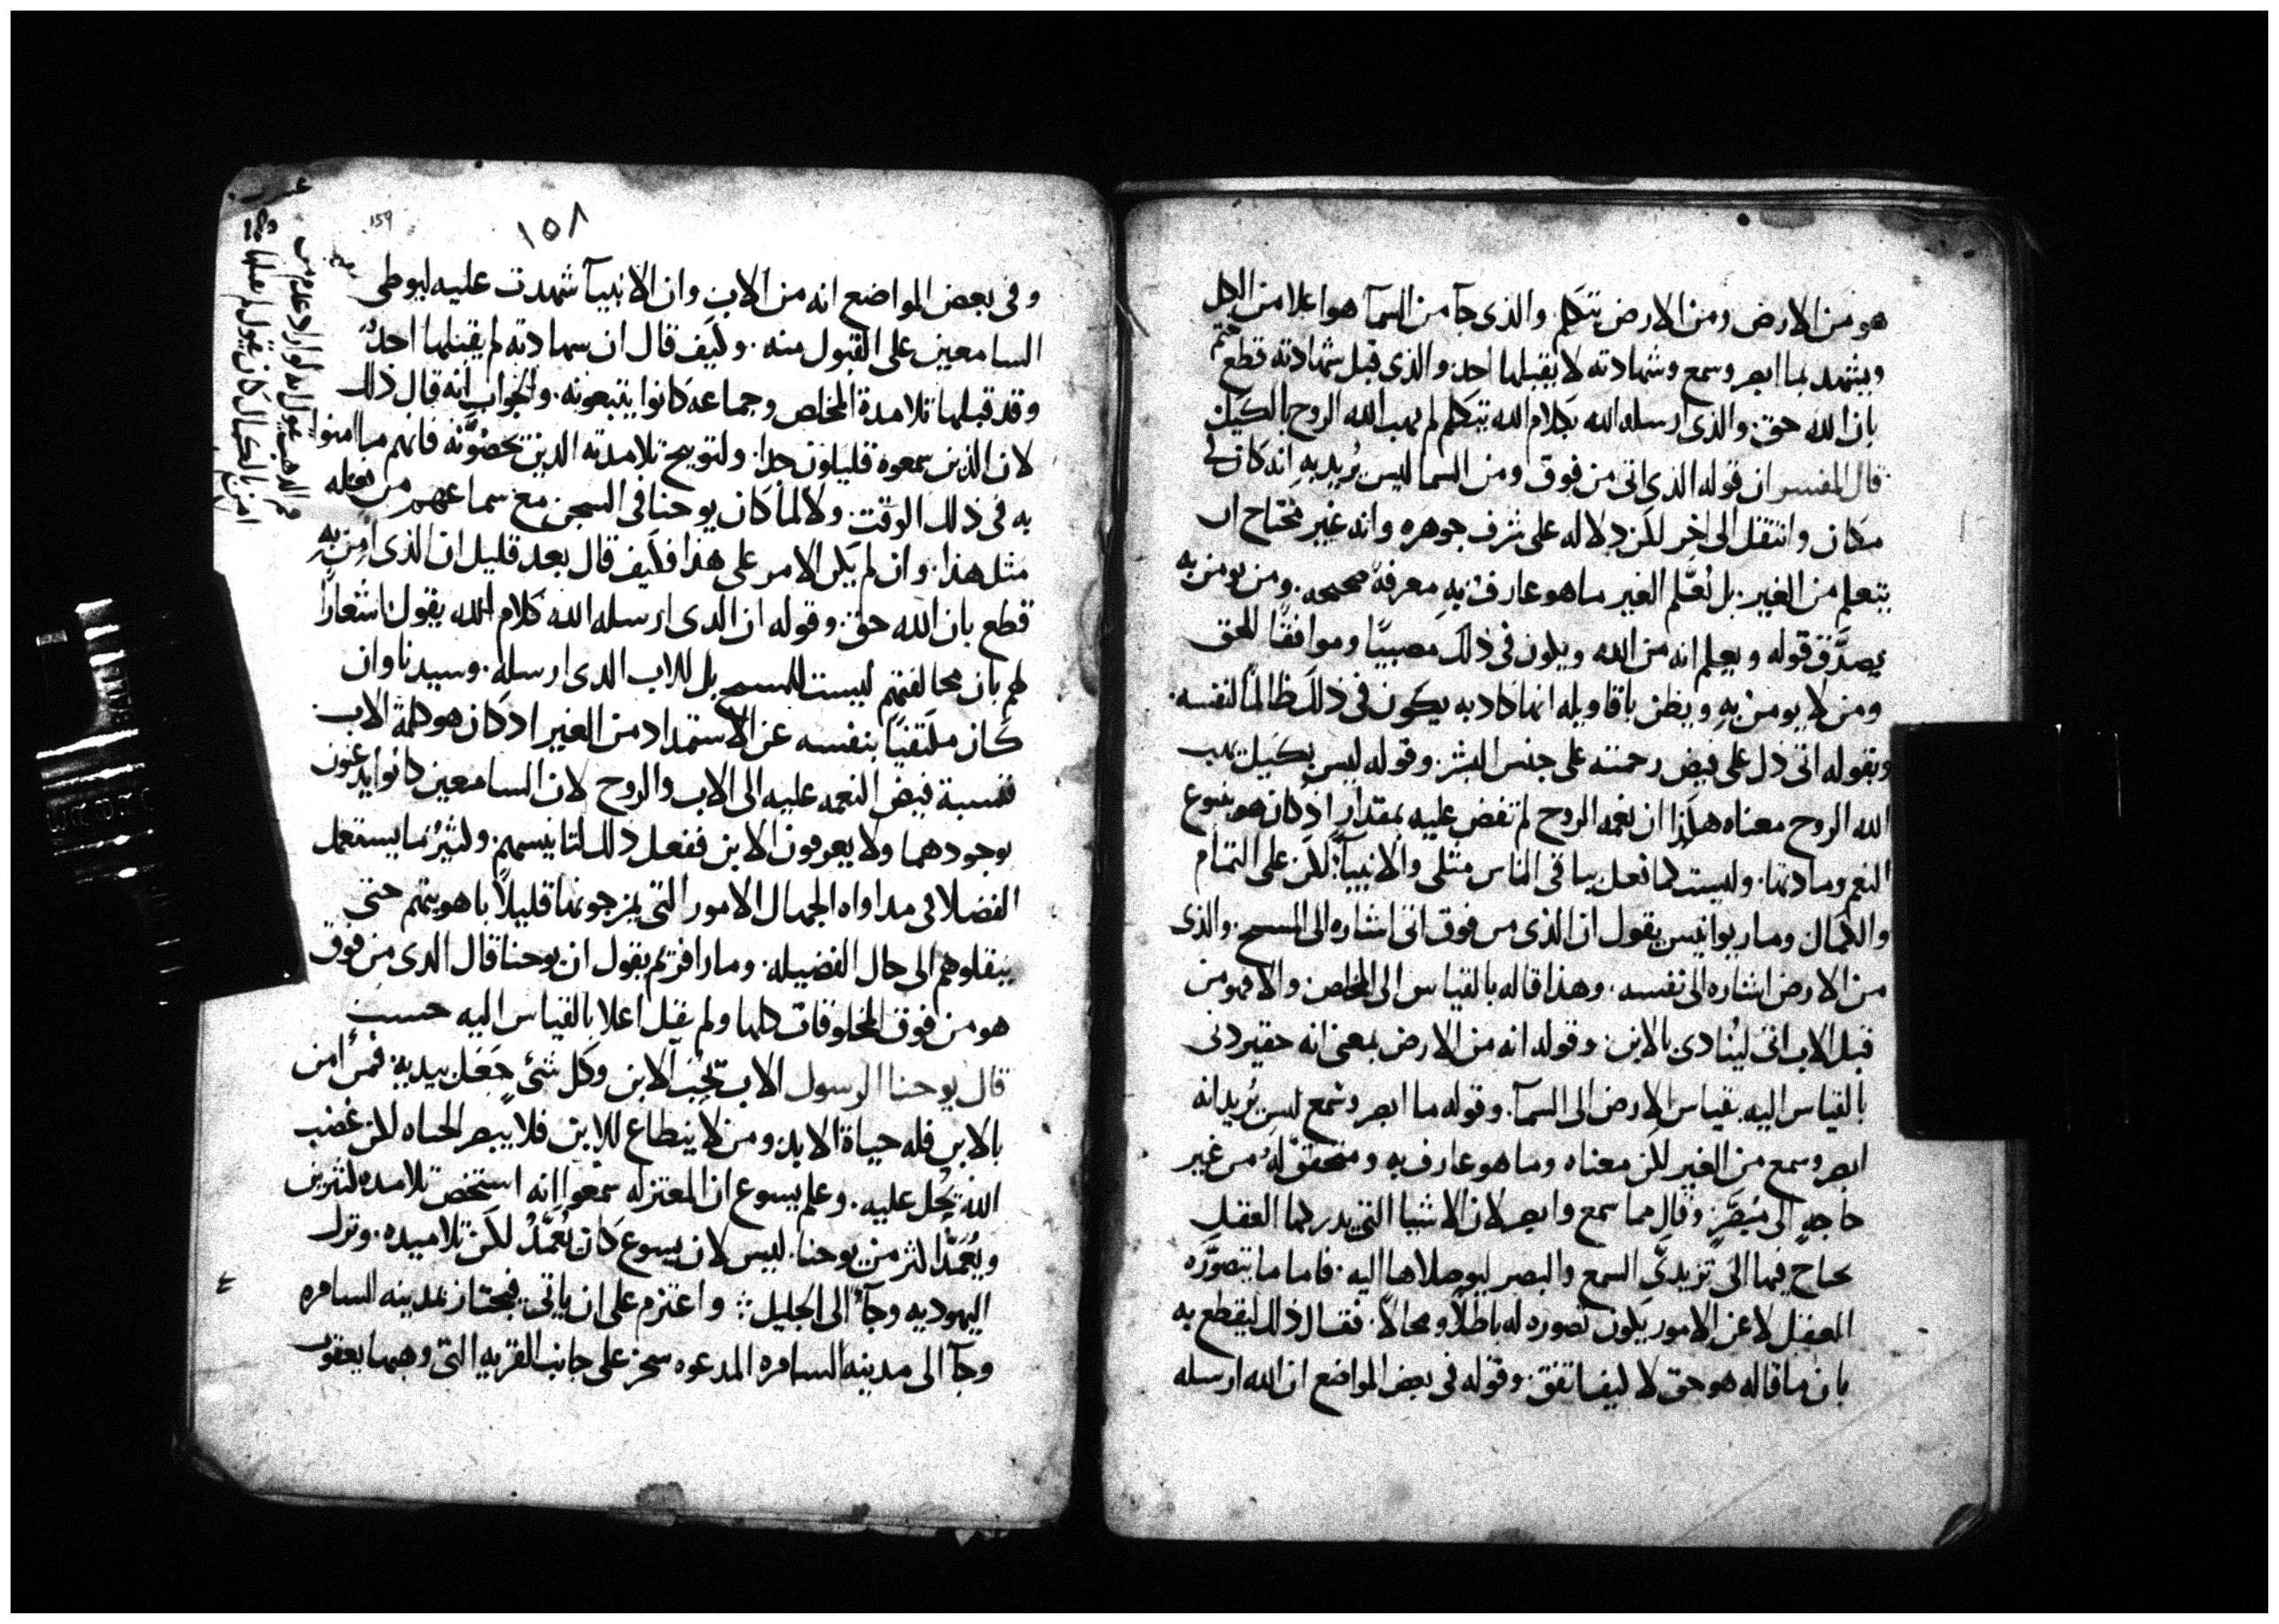 هو من الارض ومن الارض يتكلم. والذى جآ من السمآ هو اعلا من الكل
ويشهد بما ابصر وسمع وشهادته لا يقبلها احد. والذى قبل شهادته قطع ختم
بان الله حق. والذى ارسله الله بكلام الله يتكلم لم يهب الله الروح بالكيل
قال المفسر ان قوله الذى اتى من فوق ومن السما ليس يُريد بهِ انه كان فى
مكان وانتقل الى اخر لكن دلاله على شرف جوهره وانه غير محتاح ان
يتعلم من الغير. بل يُعلّم الغير ما هو عارفٌ بهِ معرفةً صحيحه. ومن يومن به
يصدّق قوله ويعلم انه من الله ويكون فى ذلك مصيبًا وموافقًا للحق
ومن لا يومن بهِ ويظن باقاويله انها كاذبه يكون فى ذلك ظالمًا لنفسه.
وبقوله اتى دل على فيض رحمته على جنس البشر. وقوله ليس بكيل يهب
الله الروح معناه هكذا ان نعمه الروح لم تفض عليه بمقدار اذ كان هو ينبوع
النعم ومادتها. وليست كما تفعل بباقى الناس مثلى والانبيآ لكن على التمام
والكمال ومار يوانيس يقول ان الذى من فوق اتى اشاره الى المسيح. والذى
من الارض اشاره الى نفسه. وهذا قاله بالقياس الى المخلص والا فهو من
قبل الاب اتى ليُنادى بالابن. وقوله انه من الارض بمعنى انه حقير دنى
بالقياس اليه بقياس الارض الى السمآ. وقوله ما ابصر وسمع ليس يُريد انه
ابصر وسمع من الغير لكن معناه وما هو عارف به ومتحقّق لهُ من غير
حاجهٍ الى مُبصّرٍ وقال مما سمع وابصر لان الاشيا التى يدركها العقل
يحتاج فيها الى السمع والبصر ليوصلاها اليه. فاما ما يتصوّره
العقل لا عن الامور يكون تصوره له باطلاً ومحالاً. فقال ذلك ليقطع به
بان ما قاله هو حق لا كيف اتفق. وقوله فى بعض المواضع ان الله ارسله
١٥٨
159
وفى بعض المواضع انه من الاب وان الانبيآ شهدت عليه ليوطى
السامعين على القبول منه. وكيف قال ان شهادته لم يقبلها احدٌ
وقد قبلها تلامذة المخلص وجماعه كانوا يتبعونه. والجواب انه قال ذلك
لان الذين سمعوه قليلون جدا. ولتوبيخ تلامذته الذين فانهم ما امنوا
به فى ذلك الوقت. ولا لما كان يوحنا فى السجن مع سماعهم من
مثل هذا. وان لم يكن الامر على هذا فكيف قال بعد قليل ان الذى امن بهِ
قطع بان الله حق. وقوله ان الذى ارسله الله كلام الله يقول اشعارًا
لهم بان مخالفتهم ليست للمسيح بل للاب الذى ارسله. وسيدنا وان
كان مكتفيًا بنفسه عن الاستمداد من الغير اذ كان هو كلمة الاب
فنسبة فيض النعمه عليه الى الاب والروح لان السامعين كانوا يدعنون
بوجودهما ولا يعرفون الابن ففعل ذلك لتانيسهم. وكثيرًا ما يستعمل
الفضلا فى مداواه الجهال الامور التى يمزجونها قليلاً باهويتهم حتى
ينقلوهم الى حال الفضيله. ومار افريم يقول ان يوحنا قال الذى من فوق
هو من فوق المخلوقات كلها ولم يقل اعلا بالقياس اليه حسب
قال يوحنا الرسول الاب يُحبّ الابن وكل شئ جَعَل بيديهِ. فمن امن
بالابن فله حياة الابد ومن لا ينطاع للابن فلا يبصر الحياه لكن غضب
الله يحُل عليه. وعلم يسوع ان المعتزله سمعوا انه استخص تلامده كثيرين
ويُعمّد اكثر من يوحنا. ليس لان يسوع كان يُعمّدُ لكن تلاميذه. وترك
اليهوديه وجآ الى الجليل. واعتزم على ان ياتى فيجتاز بمدينه السامره
وجآ الى مدينه السامره المدعوه سحر على جانب القريه التى وهبها يعقوب